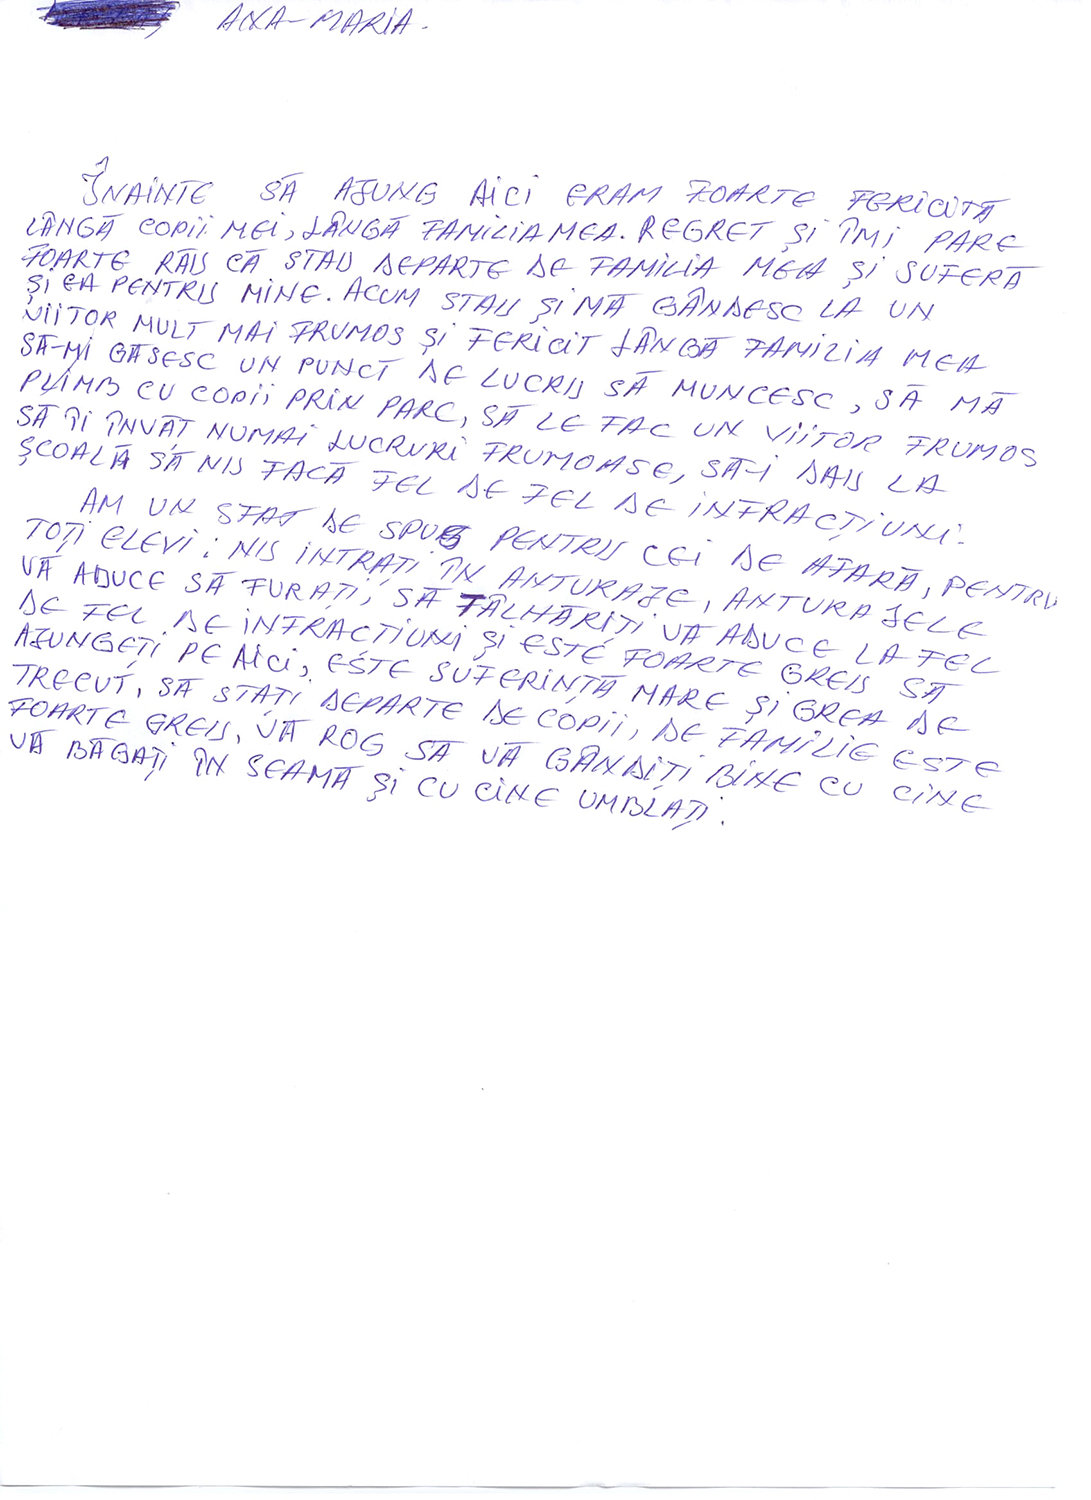 ANA-MARIA.
ÎNAINTE SĂ AJUNG AICI ERAM FOARTE FERICITĂ
LÂNGĂ COPII MEI, LÂNGĂ FAMILIA MEA. REGRET ȘI ÎMI PARE
FOARTE RĂU CĂ STAU DEPARTE DE FAMILIA MEA ȘI SUFERĂ
ȘI EA PENTRU MINE. ACUM STAU ȘI MĂ GÂNDESC LA UN
VIITOR MULT MAI FRUMOS ȘI FERICIT LÂNGĂ FAMILIA MEA
SĂ-MI GĂSESC UN PUNCT DE LUCRU SĂ MUNCESC, SĂ MĂ
PLIMB CU COPII PRIN PARC, SĂ LE FAC UN VIITOR FRUMOS
SĂ ÎI ÎNVĂȚ NUMAI LUCRURI FRUMOASE, SĂ-I DAU LA
ȘCOALĂ SĂ NU FACĂ FEL DE FEL DE INFRACȚIUNI.
AM UN SFAT DE SPUS PENTRU CEI DE AFARĂ, PENTRU
TOȚI ELEVI: NU INTRAȚI ÎN ANTURAJE, ANTURAJELE
VĂ ADUCE SĂ FURAȚI, SĂ TÂLHĂRIȚI VĂ ADUCE LA FEL
DE FEL DE INFRACȚIUNI ȘI ESTE FOARTE GREU SĂ
AJUNGEȚI PE AICI, ESTE SUFERINȚĂ MARE ȘI GREA DE
TRECUT, SĂ STAȚI DEPARTE DE COPII, DE FAMILIE ESTE
FOARTE GREU, VĂ ROG SĂ VĂ GÂNDIȚI BINE CU CINE
VĂ BĂGAȚI ÎN SEAMĂ ȘI CU CINE UMBLAȚI.